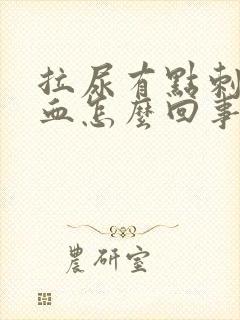 拉尿有點刺
血怎麼回事
農研室